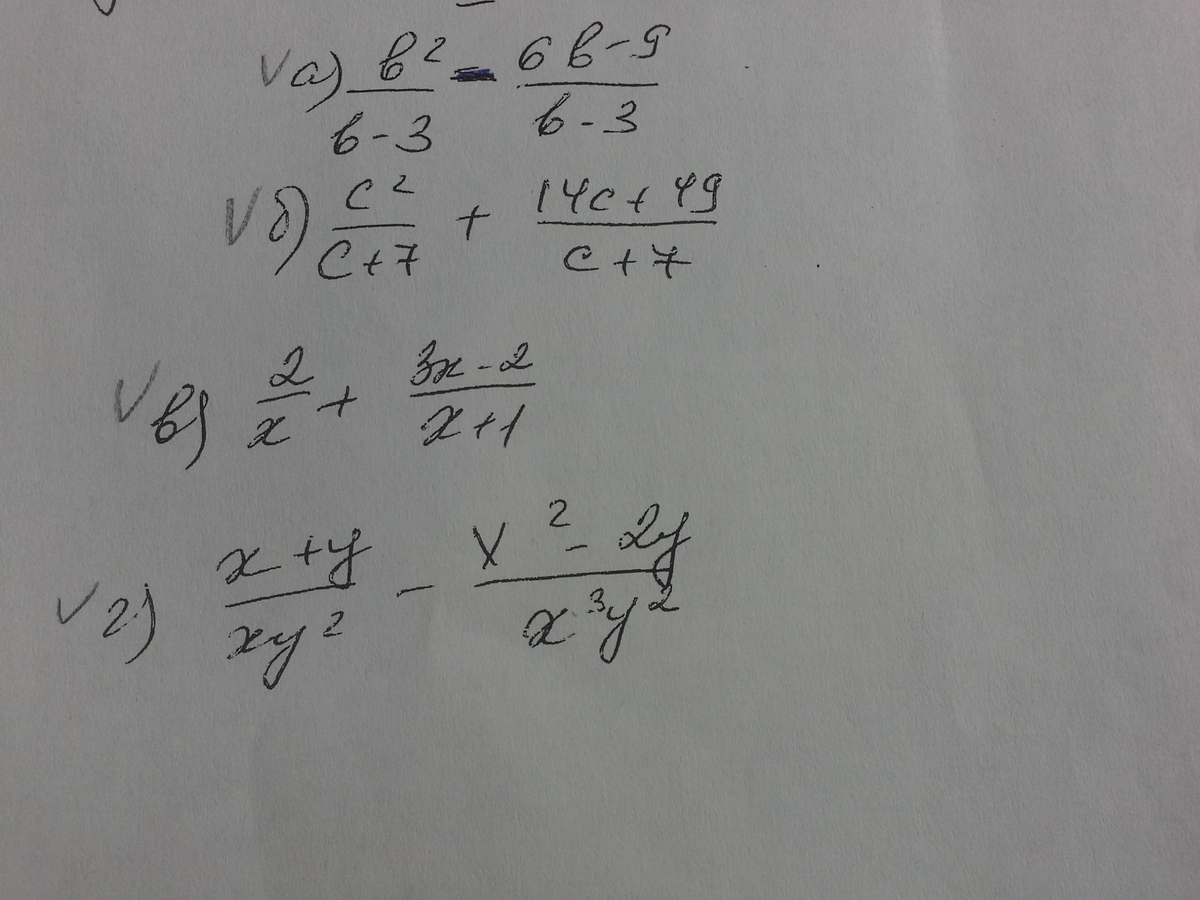 а) в²/в-3 - 6в-9/в-3
б) c²/c+7 + 14c+49/c+7
в) 2/x + 3x-2/x+1
г) x+y/xy² - x²-2y/x³y²